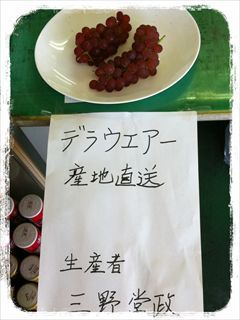 デラウエアー
産地直送
生産者
三野堂政